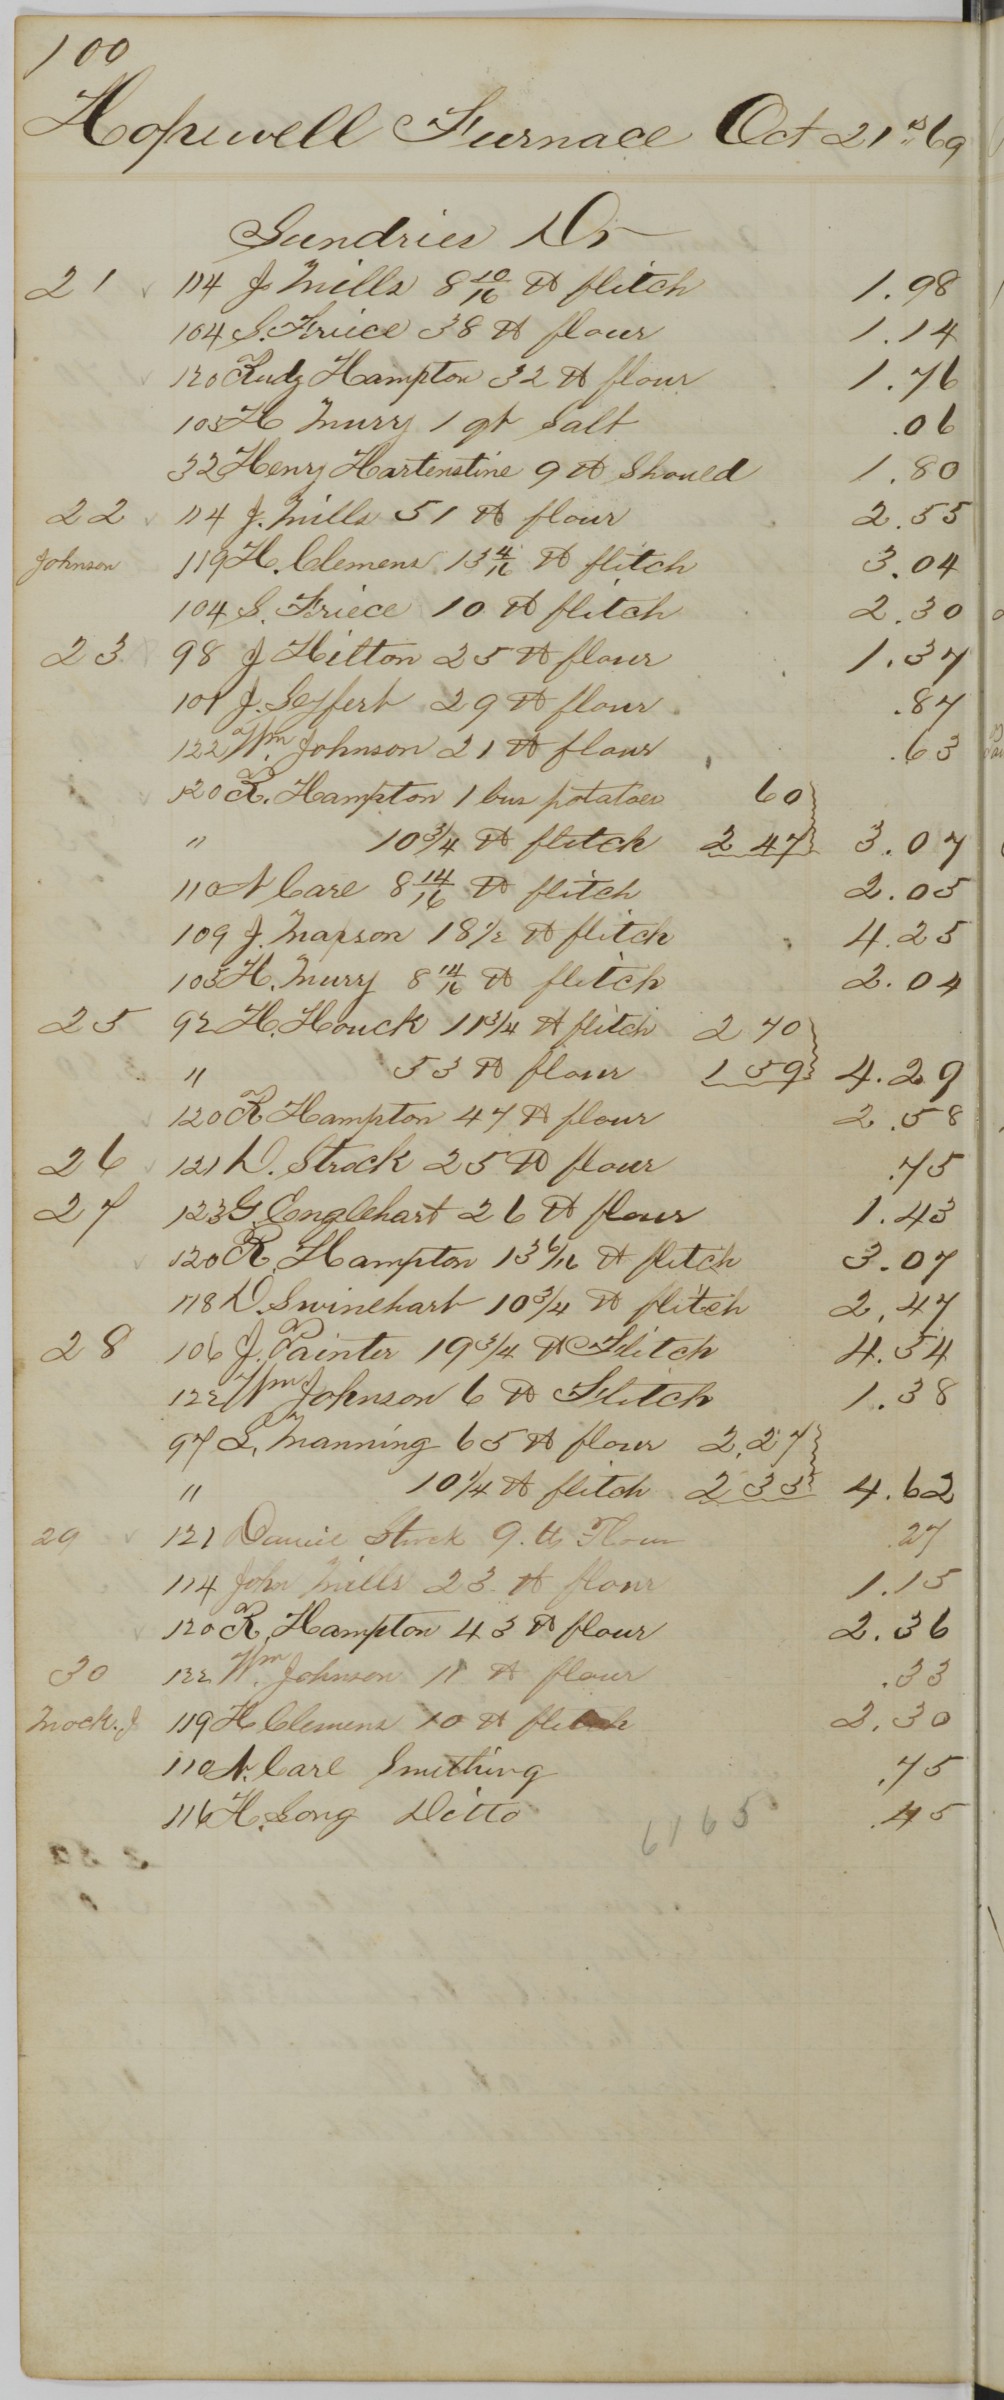 100
Hopewell Furnace Oct 21st 69
Sundries Dr
21 114 J Mills 8 10/16 lb flitch 1.98
104 S. Friece 38 lb flour 1.14
120 Rudy Hampton 32 lb flour 1.76
105 H Murry 1 qt Salt .06
32 Henry Hartenstine 9 lb Should 1.80
22 114 J. Mills 51 lb flour 2.55
Johnson 119 H. Clemens 13 4/16 lb flitch 3.04
104 S. Friece 10 lb flitch 2.30
23 98 J Hilton 25 lb flour 1.37
101 J. Seyfert 29 lb flour .87
122 Wm Johnson 21 lb flour .63
120 R. Hampton 1 bus potatoes 60
" 10 3/4 lb flitch 2 47 3.07
110 N Care 8 14/16 lb flitch 2.05
109 J. Mapson 18 1/2 lb flitch 4.25
105 H. Murry 8 14/16 lb flitch 2.04
25 92 H. Houck 11 3/4 lb flitch 2 70
" 53 lb flour 1 59 4.29
120 R Hampton 47 lb flour 2.58
26 121 D. Strock 25 lb flour .75
27 123 G. Englehart 26 lb flour 1.43
120 R. Hampton 13 6/16 lb flitch 3.07
118 D. Swinehart 10 3/4 lb flitch 2.47
28 106 J. Painter 19 3/4 lb Flitch 4.54
122 Wm Johnson 6 lb Flitch 1.38
97 L. Manning 65 lb flour 2.27
" 10 1/4 lb flitch 2 35 4.62
29 121 Daniel Strock 9 lb Flour .27
114 John Mills 23 lb flour 1.15
120 R. Hampton 43 lb flour 2.36
30 122 Wm. Johnson 11 lb flour .33
Mock. J 119 H Clemens 10 lb flitch 2.30
110 N. Care Smithing .75
116 H. Long Ditto .45
6165